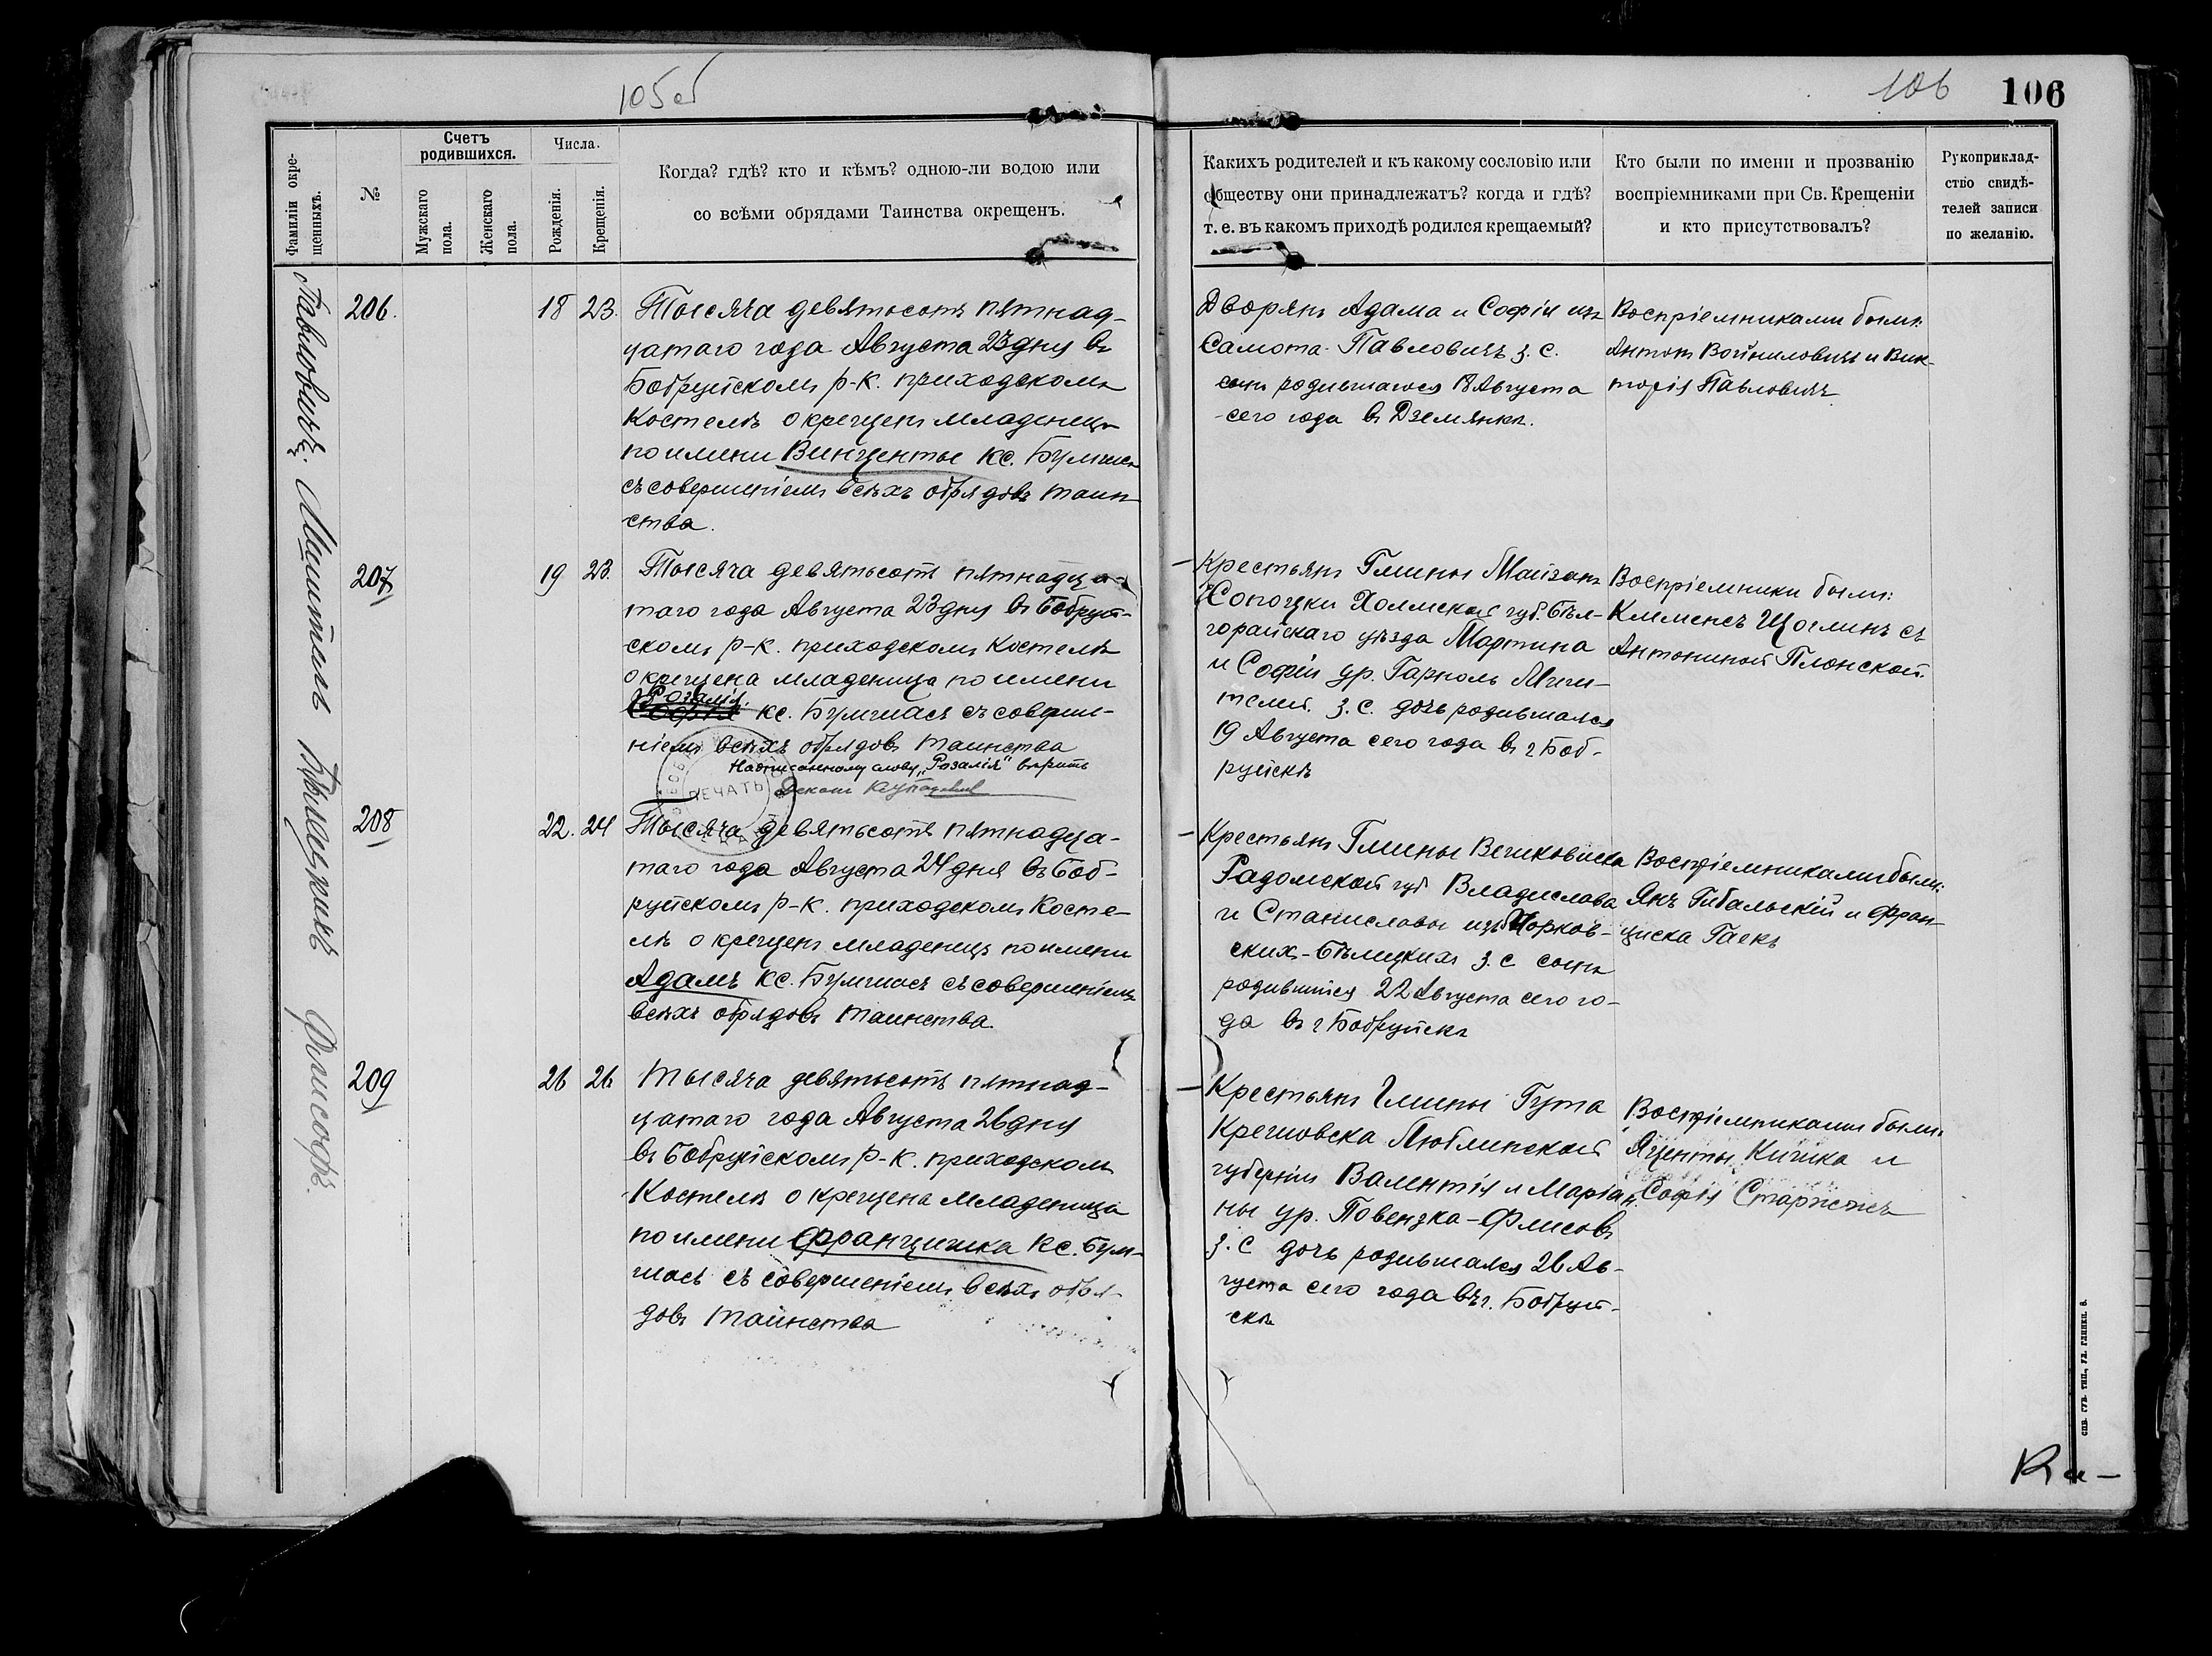 105об
106
106
Фамиліи окре-
щенныхъ.
№
Счетъ
родившихся.
Мужскаго
пола.
Женскаго
пола.
Числа.
Рожденія.
Крещенія.
Когда? гдѣ? кто и кѣмъ? одною-ли водою или
со всѣми обрядами Таинства окрещенъ.
Какихъ родителей и къ какому сословію или
обществу они принадлежатъ? когда и гдѣ?
т. е. въ какомъ приходѣ родился крещаемый?
Кто были по имени и прозванію
воспріемниками при Св. Крещеніи
и кто присутствовалъ?
Рукоприклад-
ство свидѣ-
телей записи
по желанію.
Павловичъ.
206.
18
23.
Тысяча девятьсотъ пятнад-
цатаго года Августа 23 дня въ
Бобруйскомъ р-к. приходскомъ
Костелѣ окрещенъ младенецъ
по имени Винценты кс. Булгисъ
съ совершеніемъ всѣхъ обрядовъ таин-
ства.
Дворянъ Адама и Софіи изъ
Самота Павловичъ з. с.
сынъ родившагося 18 Августа
сего года в Дземянкъ.
Воспріемниками были:
Антонъ Войниловичъ и Вик-
торія Павловичъ
207
19
23.
Тысяча девятьсотъ пятнадца-
таго года Августа 23 дня въ Бобруй-
скомъ р-к. приходскомъ Костелѣ
окрещена младеница по имени
Розалія.
Софія кс. Булгисъ съ соверше-
ніемъ всѣхъ обрядовъ таинства
Надписанному слову „Розалія" вѣрить
Деканъ
ПЕЧАТЬ
Крестьянъ Гмины Майданъ
Сопоцки Холмской губ. Бѣл-
горайскаго уѣзда Мартина
и Софіи ур.
з. с. дочь родившаяся
19 Августа сего года в г Боб-
руйскѣ
Воспріемники были:
Клименсъ съ
Антониной Плонской
208
22.
24
Тысяча девятьсотъ пятнадца-
таго года Августа 24 дня въ Боб-
руйскомъ р-к. приходскомъ Косте-
лѣ окрещенъ младенецъ по имени
Адамъ кс. Булгисъ съ совершеніемъ
всѣхъ обрядовъ таинства.
Крестьянъ Гмины
Радомской губ Владислава
и Станиславы изъ Чорков-
скихъ-Бѣлицкихъ з. с сынъ
родившійся 22 Августа сего го-
да въ г Бобруйскѣ
Воспріемниками были:
Янъ Гибальскій и Фран-
циска Гаекъ
Флисовъ.
209
26
26
Тысяча девятьсотъ пятнад-
цатаго года Августа 26 дня
въ Бобруйскомъ р-к. приходскомъ
Костелѣ окрещена младеница
по имени Францишка кс. Бул-
гисъ съ совершеніемъ всѣхъ обря-
довъ таинства
Крестьянъ Гмины Гута
Крешовска Люблинской
губерніи Валентія и Маріан-
ны ур. Повензка-Флисовъ
з. с дочь родившаяся 26 Ав-
густа сего года въ г. Бобруй-
скѣ
Воспріемниками были:
Яценты Кичка и
Софія
СПВ. ГУВ. ТИП., УЛ. ГЛИНКИ. 8.